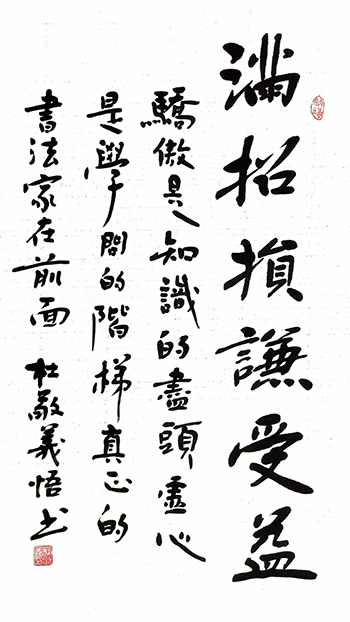 滿招損謙受益
驕傲是知識的盡頭虛心
是學問的階梯真正的
書法家在前面 杜敬義悟書